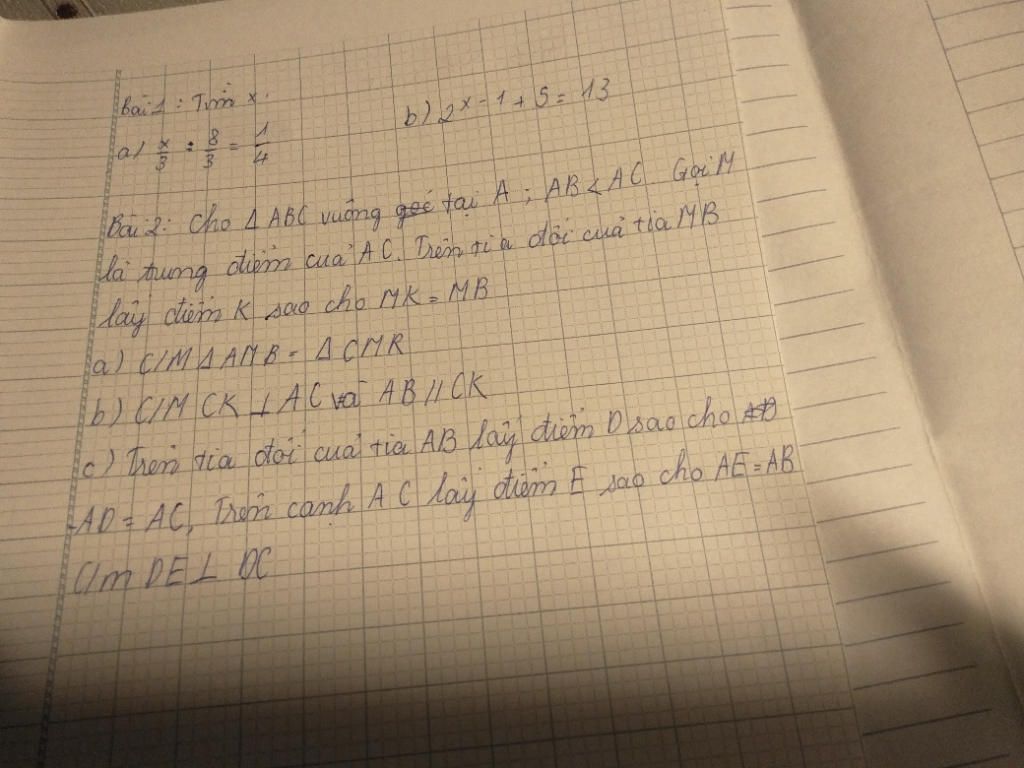 Bài 1 : Tìm x.
a) x/3 : 8/3 = 1/4 b) 2^x-1 + 5 = 13
Bài 2: Cho Δ ABC vuông góc tại A ; AB < AC. Gọi M
là trung điểm của AC. Trên tia đối của tia MB
lấy điểm K sao cho MK = MB
a) C/M Δ AMB = Δ CMK
b) C/M CK ⊥ AC và AB // CK
c) Trên tia đối của tia AB lấy điểm D sao cho
AD = AC, Trên cạnh AC lấy điểm E sao cho AE = AB
C/m DE ⊥ BC